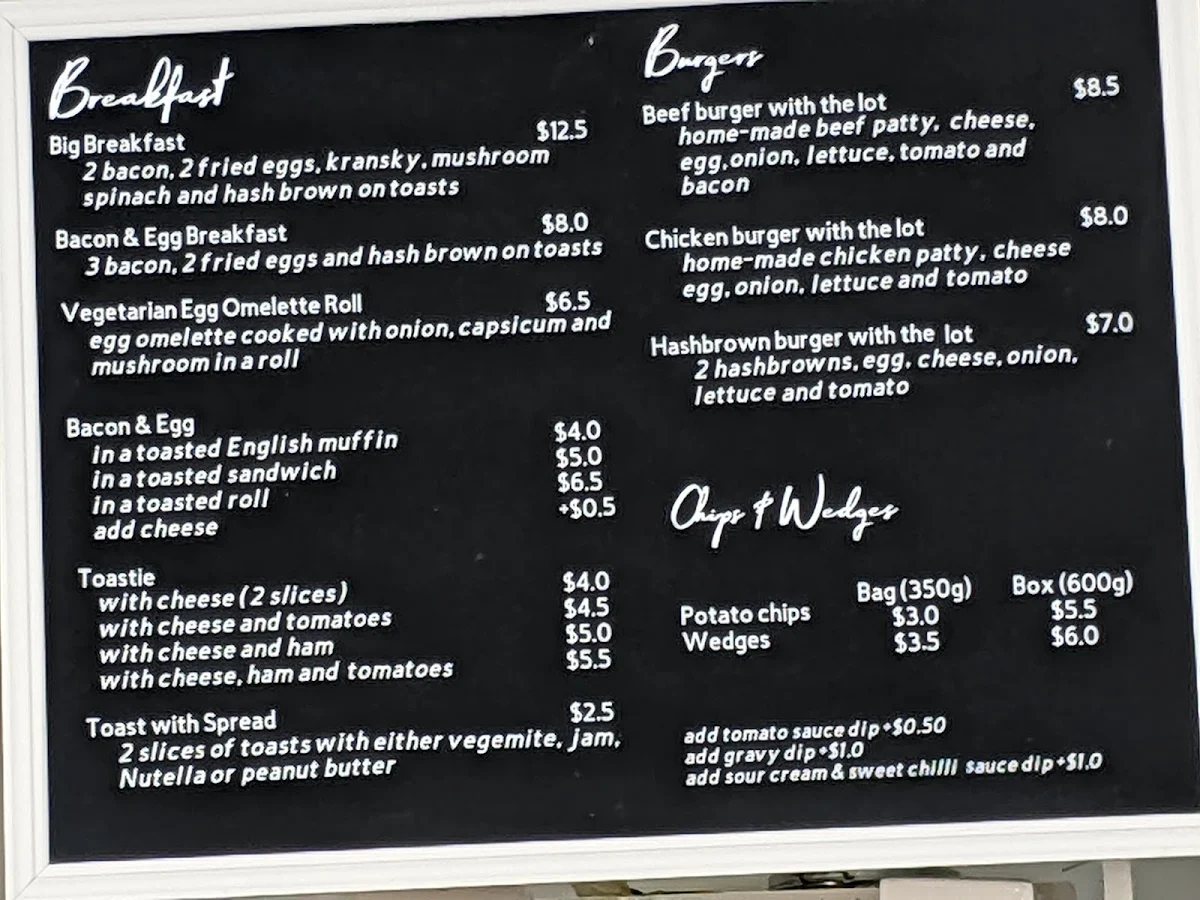 Breakfast
Big Breakfast $12.5
2 bacon, 2 fried eggs, kransky, mushroom
spinach and hash brown on toasts
Bacon & Egg Breakfast $8.0
3 bacon, 2 fried eggs and hash brown on toasts
Vegetarian Egg Omelette Roll $6.5
egg omelette cooked with onion, capsicum and
mushroom in a roll
Bacon & Egg
in a toasted English muffin $4.0
in a toasted sandwich $5.0
in a toasted roll $6.5
add cheese +$0.5
Toastie
with cheese (2 slices) $4.0
with cheese and tomatoes $4.5
with cheese and ham $5.0
with cheese, ham and tomatoes $5.5
Toast with Spread $2.5
2 slices of toasts with either vegemite, jam,
Nutella or peanut butter
Burgers
Beef burger with the lot $8.5
home-made beef patty, cheese,
egg, onion, lettuce, tomato and
bacon
Chicken burger with the lot $8.0
home-made chicken patty, cheese
egg, onion, lettuce and tomato
Hashbrown burger with the lot $7.0
2 hashbrowns, egg, cheese, onion,
lettuce and tomato
Chips & Wedges
Bag (350g) Box (600g)
Potato chips $3.0 $5.5
Wedges $3.5 $6.0
add tomato sauce dip +$0.50
add gravy dip +$1.0
add sour cream & sweet chilli sauce dip +$1.0